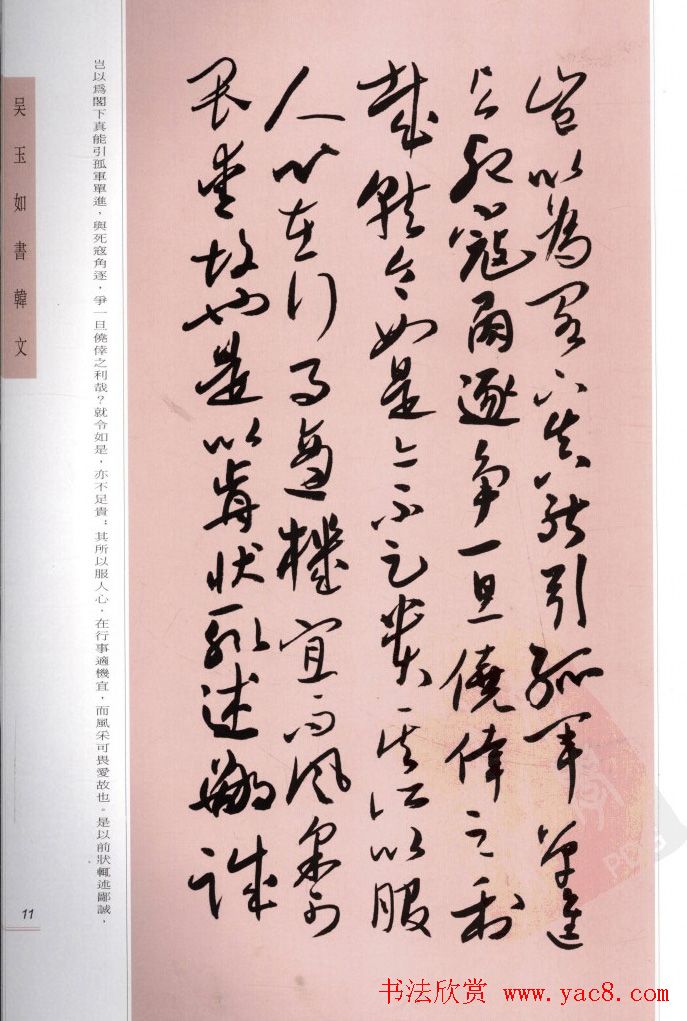 豈以為閣下真能引孤軍單進
與死寇角逐爭一旦僥倖之利
哉就令如是亦不足貴其所以服
人心在行事適機宜而風采可
畏愛故也是以前狀輒述鄙誠
豈以爲閣下真能引孤軍單進，與死寇角逐，爭一旦僥倖之利哉？就令如是，亦不足貴；其所以服人心，在行事適機宜，而風采可畏愛故也。是以前狀輒述鄙誠，
吴玉如書韓文
11
PDG
书法欣赏 www.yac8.com